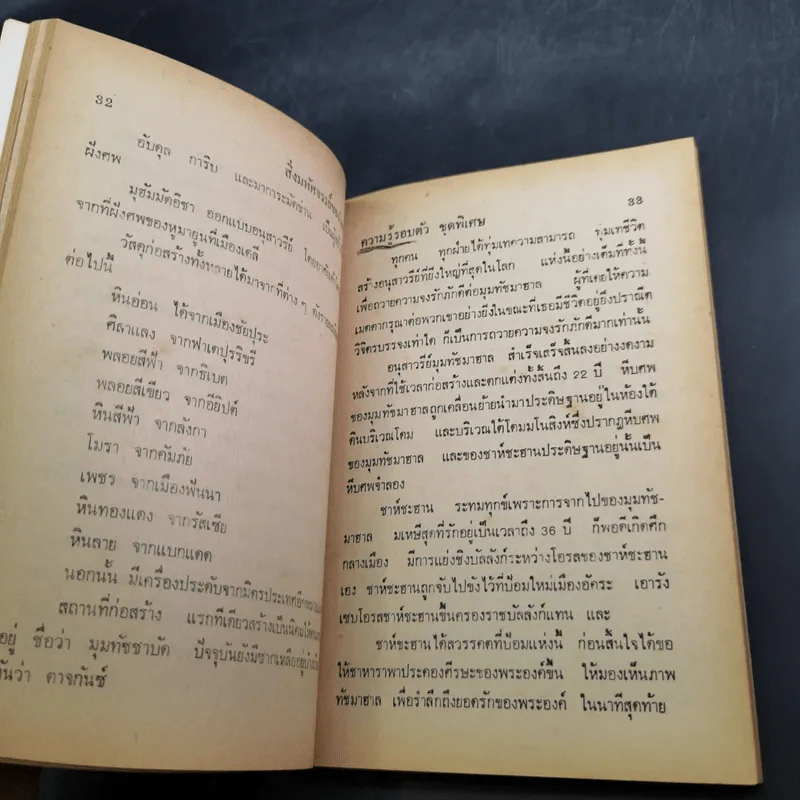 32
สิ่งมหัศจรรย์
อับดุล การิบ และมาการะมัตข่าน เป็น
ฝังศพ
มุฮัมมัดอิซา ออกแบบอนุสาวรีย์ โดย
จากที่ฝังศพของหูมายูนที่เมืองเดลี
วัสดุก่อสร้างทั้งหลายได้มาจากที่ต่าง ๆ
ต่อไปนี้
หินอ่อน ได้จากเมืองชัยปุระ
ศิลาแลง จากฟาเตปุรริขรี
พลอยสีฟ้า จากธิเบต
พลอยสีเขียว จากอียิปต์
หินสีฟ้า จากลังกา
โมรา จากคัมภัย
เพชร จากเมืองฟันนา
หินทองแดง จากรัสเซีย
หินลาย จากแบกแดด
นอกนั้น มีเครื่องประดับจากมิตรประเทศอีก
สถานที่ก่อสร้าง แรกทีเดียวสร้างเป็นนิคม
อยู่ ชื่อว่า มุมทัชชาบัด ปัจจุบันยังมีซากเหลืออยู่
กันว่า ตาจกันซ์
33
ความรู้รอบตัว ชุดพิเศษ
ทุกคน ทุกฝ่ายได้ทุ่มเทความสามารถ ทุ่มเทชีวิต
สร้างอนุสาวรีย์ที่ยิ่งใหญ่ที่สุดในโลก แห่งนี้อย่างเต็มที่ทั้งนี้
เพื่อถวายความจงรักภักดีต่อมุมทัชมาฮาล ผู้ที่เคยให้ความ
เมตตากรุณาต่อพวกเขาอย่างยิ่งในขณะที่เธอมีชีวิตอยู่ยิ่งปราณีต
วิจิตรบรรจงเท่าใด ก็เป็นการถวายความจงรักภักดีมากเท่านั้น
อนุสาวรีย์มุมทัชมาฮาล สำเร็จเสร็จสิ้นลงอย่างงดงาม
หลังจากที่ใช้เวลาก่อสร้างและตกแต่งทั้งสิ้นถึง 22 ปี หีบศพ
ของมุมทัชมาฮาลถูกเคลื่อนย้ายนำมาประดิษฐานอยู่ในห้องใต้
ดินบริเวณโดม และบริเวณใต้โดมมโนสิงห์ซึ่งปรากฎหีบศพ
ของมุมทัชมาฮาล และของชาห์ชะฮานประดิษฐานอยู่นั้นเป็น
หีบศพจำลอง
ชาห์ชะฮาน ระทมทุกข์เพราะการจากไปของมุมทัช-
มาฮาล มเหษีสุดที่รักอยู่เป็นเวลาถึง 36 ปี ก็พอดีเกิดศึก
กลางเมือง มีการแย่งชิงบัลลังก์ระหว่างโอรสของชาห์ชะฮาน
เอง ชาห์ชะฮานถูกจับไปขังไว้ที่ป้อมใหม่เมืองอัคระ เอารัง
เซบโอรสชาห์ชะฮานขึ้นครองราชบัลลังก์แทน และ
ชาห์ชะฮานได้สวรรคตที่ป้อมแห่งนี้ ก่อนสิ้นใจได้ขอ
ให้ชาหาราพาประคองศีรษะของพระองค์ขึ้น ให้มองเห็นภาพ
ทัชมาฮาล เพื่อรำลึกถึงยอดรักของพระองค์ ในนาทีสุดท้าย